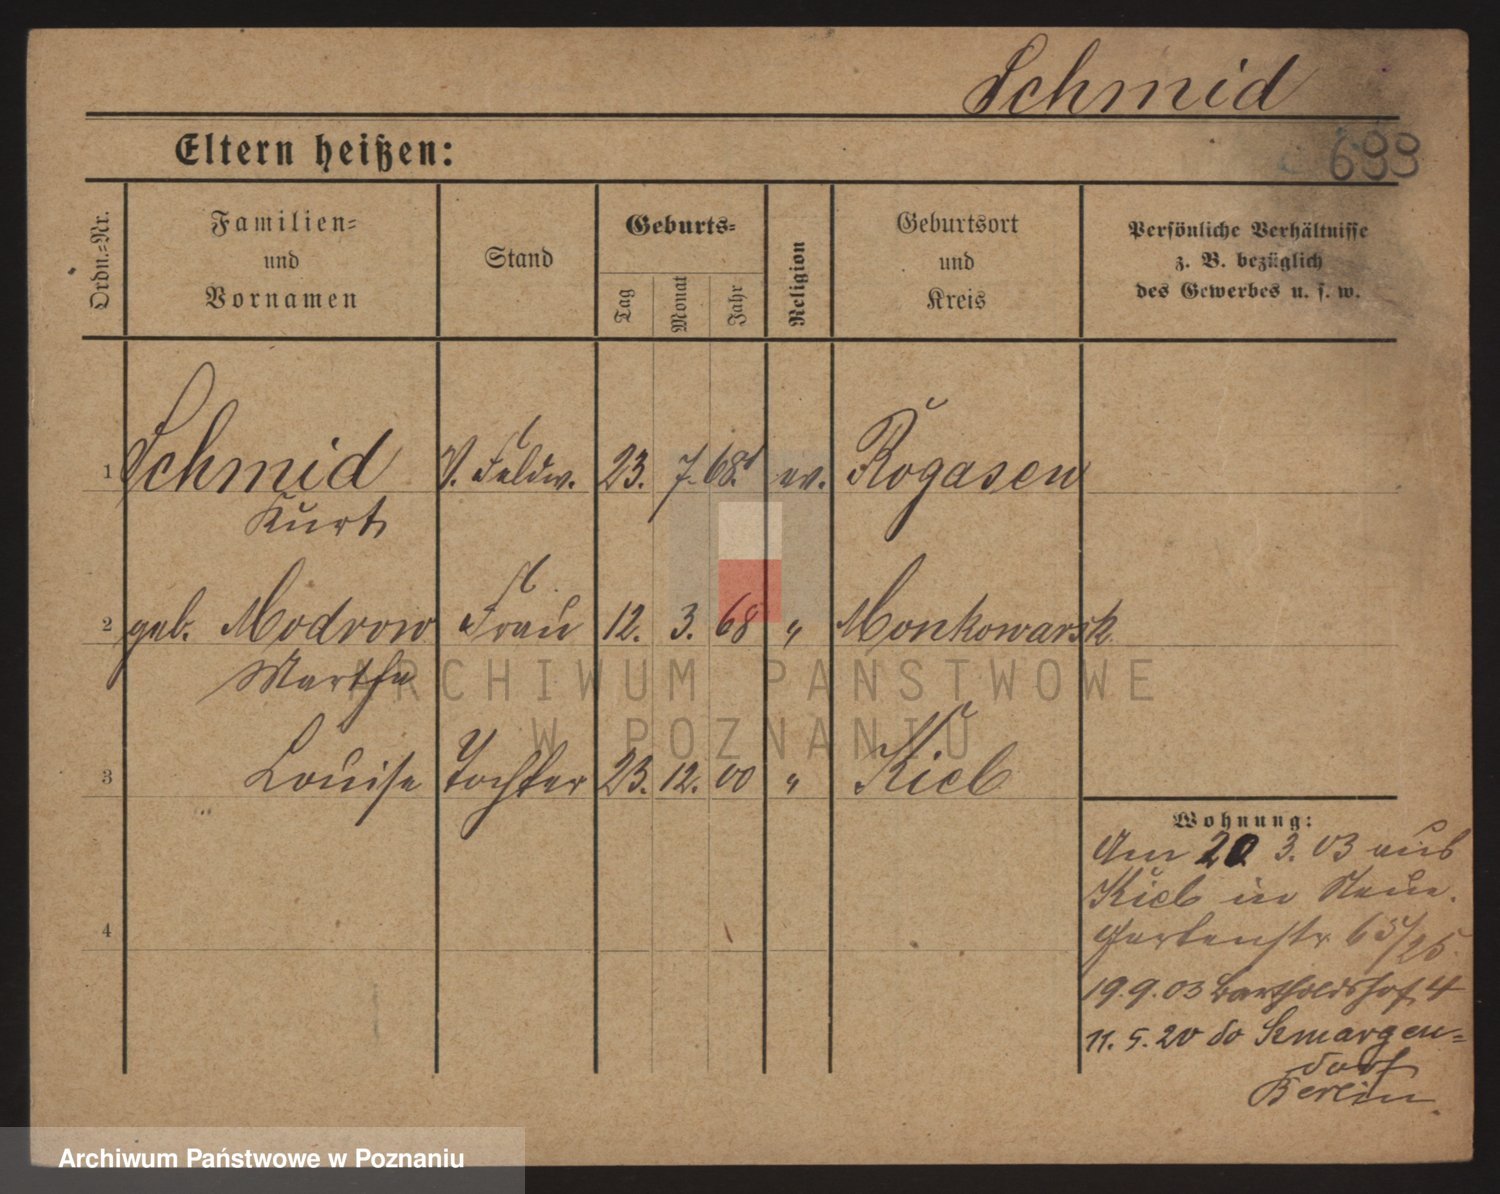 Schmid
699
Eltern heißen:
Ordn.-Nr.
Familien-
und
Vornamen
Stand
Geburts-
Tag
Monat
Jahr
Religion
Geburtsort
und
Kreis
Persönliche Verhältnisse
z. B. bezüglich
des Gewerbes u. s. w.
1 Schmid V. Feldw. 23. 7. 68. ev. Rogasen
Kurt
2 geb. Modrow Frau 12. 3. 68 " Monkowarsk
Martha
3 Louise Tochter 23. 12. 00 " Kiel
4
Wohnung:
Am 20. 3. 03 aus
Kiel in Neue
Gartenstr. 65/25.
19.9.03 Bartholdshof 4
11.5.20 do Schmargen=
dorf
Berlin.
ARCHIWUM PAŃSTWOWE
W POZNANIU
Archiwum Państwowe w Poznaniu